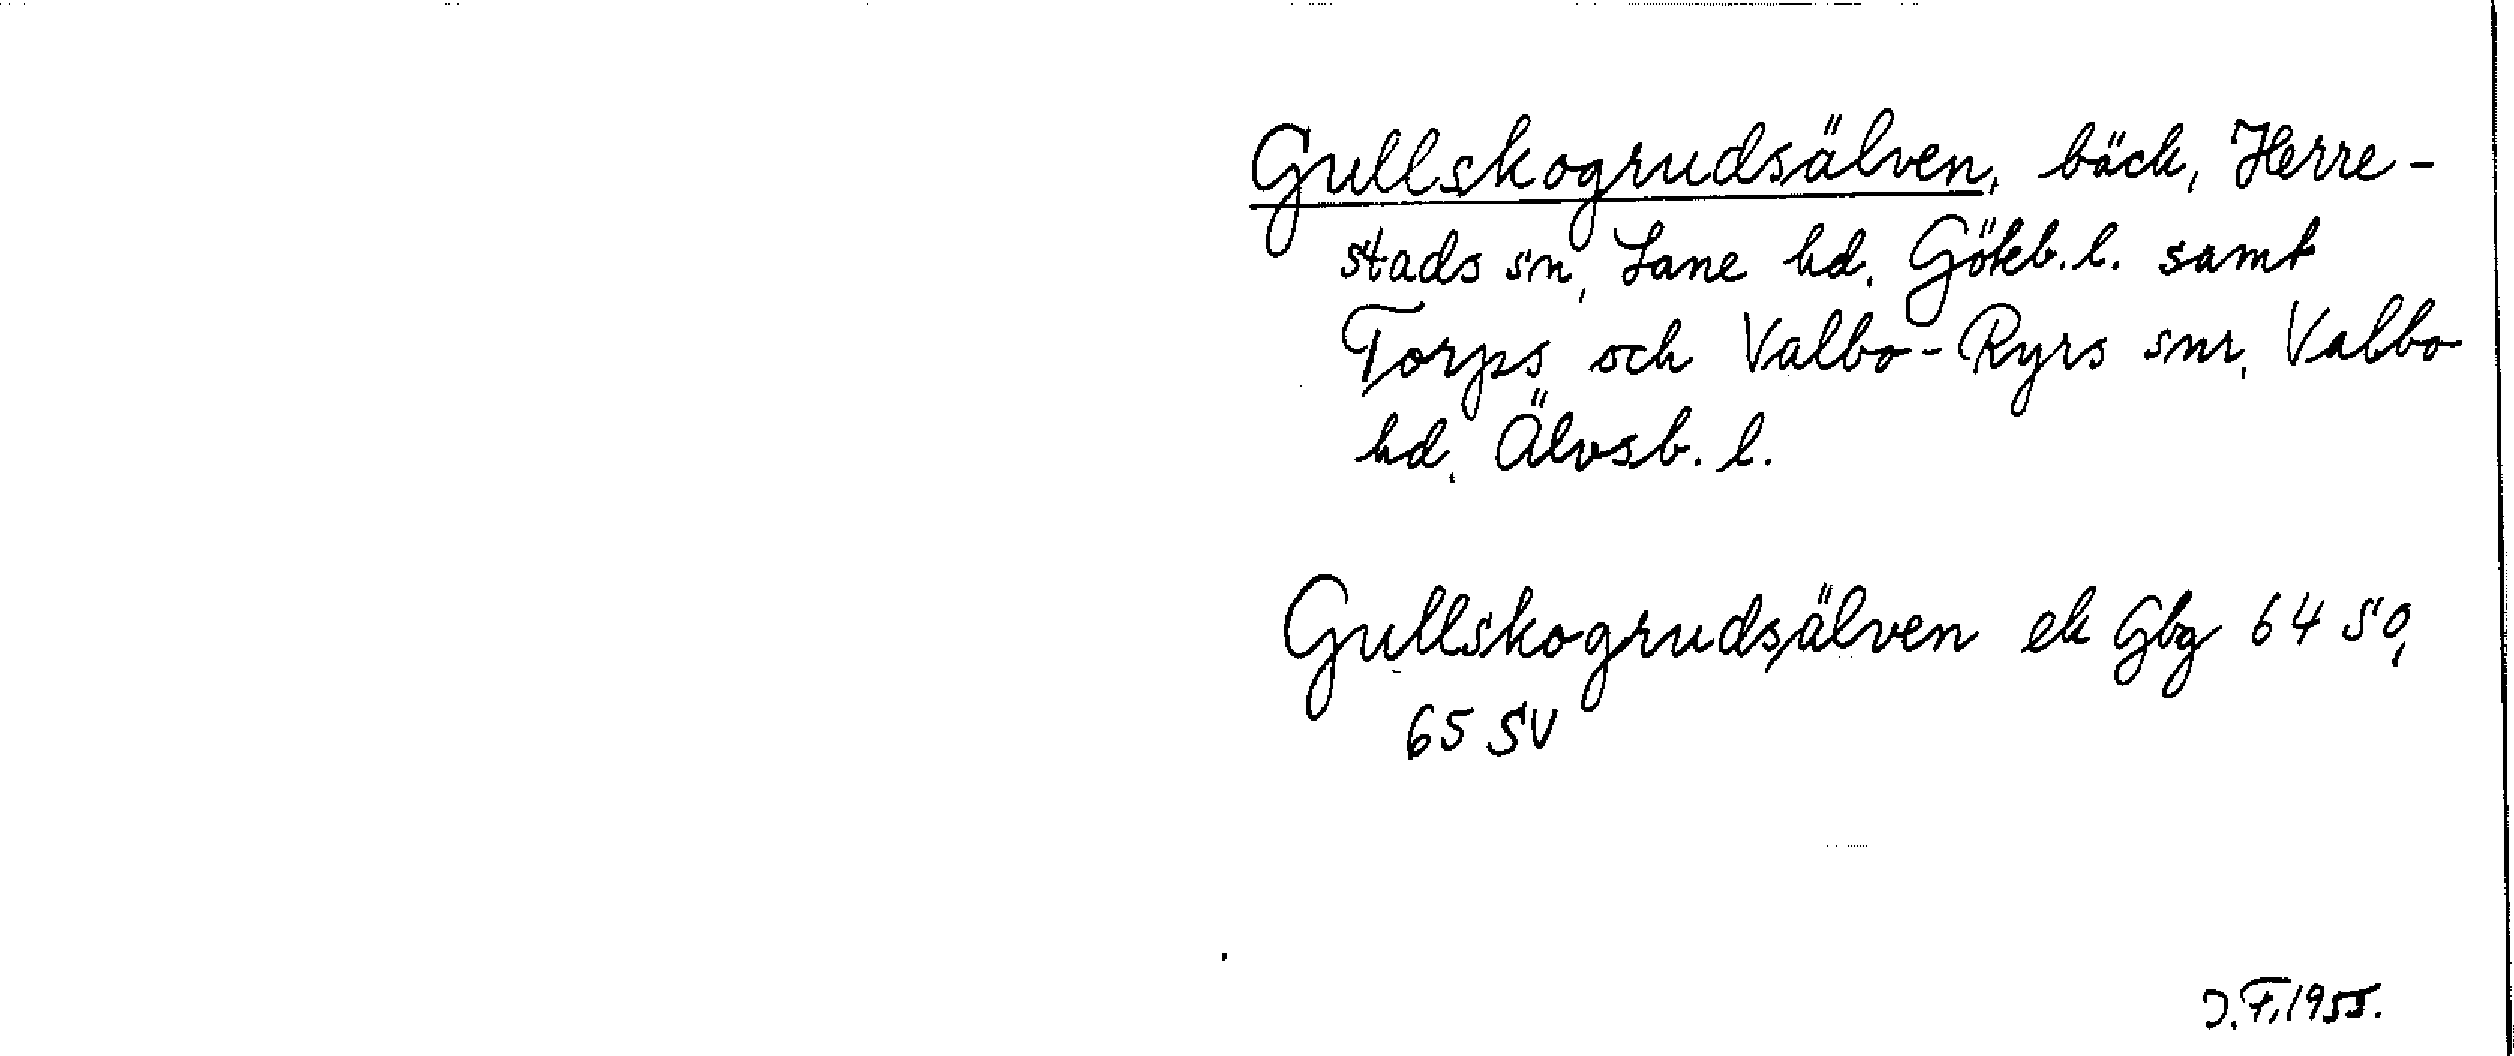 Gullskogrudsälven, bäck, Herre-
stads sn, Lane hd, Göteb. l. samt
Torps och Valbo-Ryrs snr, Valbo
hd, Älvsb. l.
Gullskogrudsälven ek Gbg 64 SO,
65 SV
J.F. 1955.